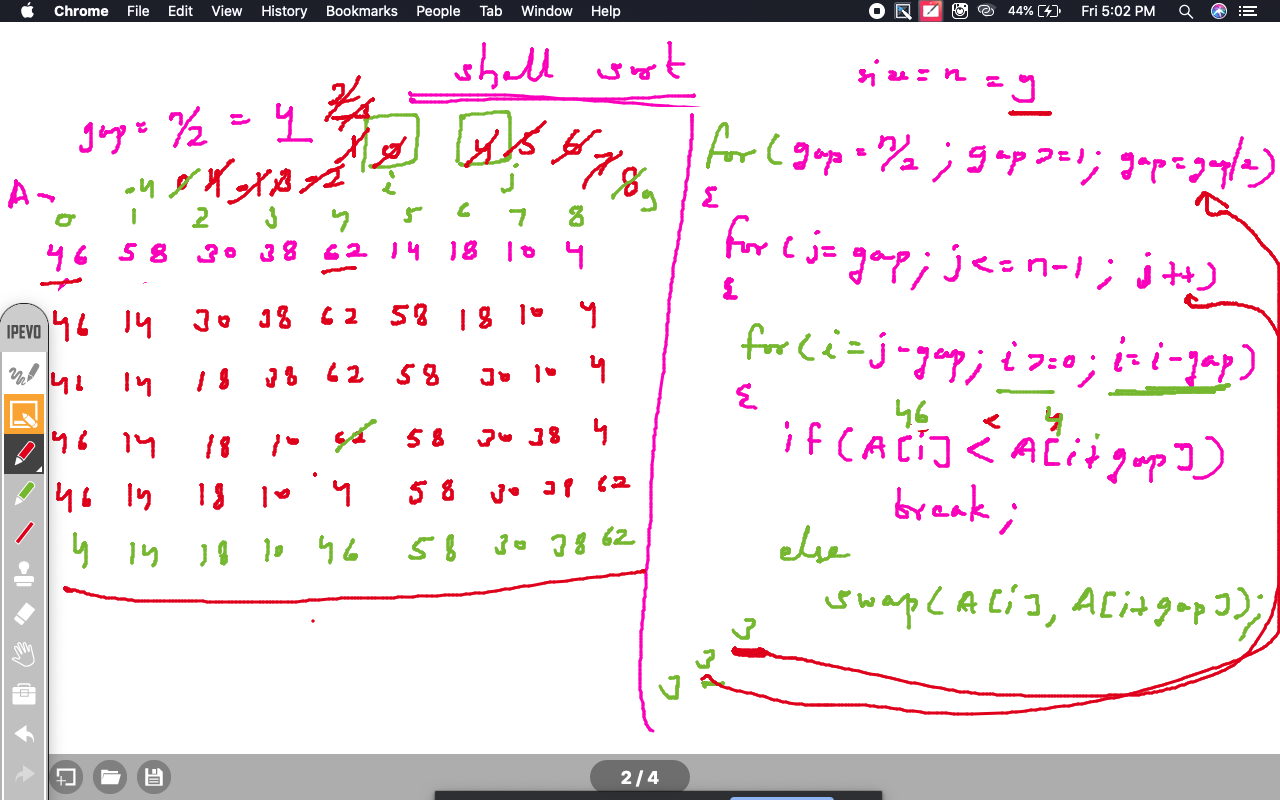 Chrome File Edit View History Bookmarks People Tab Window Help 44% Fri 5:02 PM
shell sort
size = n = 9
gap = n/2 = 4
i j
A
0 1 2 3 4 5 6 7 8
46 58 30 38 62 14 18 10 4
46 14 30 38 62 58 18 10 4
46 14 18 38 62 58 30 10 4
46 14 18 10 62 58 30 38 4
46 14 18 10 4 58 30 38 62
4 14 18 10 46 58 30 38 62
for( gap = n/2 ; gap >= 1; gap = gap/2)
{
for( j = gap; j <= n-1 ; j++)
{
for( i = j - gap; i >= 0; i = i - gap)
{
46 < 4
if( A[i] < A[i+gap])
break;
else
swap( A[i], A[i+gap]);
}
}
}
IPEVO
2 / 4